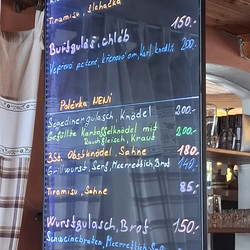 Tiramisu, šlehačka 150,-
Buřtguláš, chléb
Vepřová pečeně, křenová om, Karl. knedlík 200,-
Polévka NENÍ
Szegedinergulasch, Knödel 200,-
Gefüllte Kartoffelknödel mit 200,-
Rauhfleisch, Kraut
3St. Obstknödel, Sahne 180,-
Grillwurst, Senf, Meerrettich, Brot 140,-
Tiramisu, Sahne 85,-
Wurstgulasch, Brot 150,-
Schweinebraten, Meerrettich